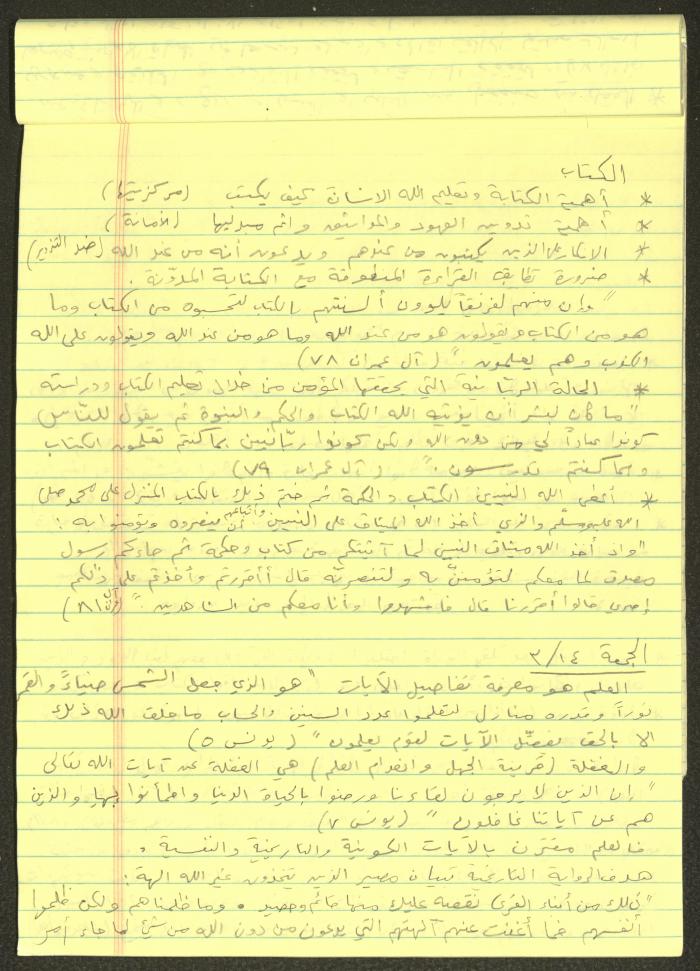 الكتاب
* أهمية الكتابة وتعليم الله الانسان كيف يكتب (مركزيتها)
* أهمية تدوين العهود والمواثيق واثم مبدليها (الأمانة)
* الانكار على الذين يكتبون من عندهم ويدعون أنه من عند الله (ضد التزوير)
* ضرورة تطابق القراءة المنطوقة مع الكتابة المدوّنة .
"وإن منهم لفريقاً يلوون ألسنتهم بالكتاب لتحسبوه من الكتاب وما
هو من الكتاب ويقولون هو من عند الله وما هو من عند الله ويقولون على الله
الكذب وهم يعلمون." (آل عمران ٧٨)
* الحالة الربّانية التي يحققها المؤمن من خلال تعليم الكتاب ودراسته
"ما كان لبشر أن يؤتيه الله الكتاب والحكم والنبوة ثم يقول للنّاس
كونوا عباداً لي من دون الله ولكن كونوا ربّانيين بما كنتم تعلمون الكتاب
وبما كنتم تدرسون." (آل عمران ٧٩)
* أعطى الله النبيين الكتاب والحكمة ثم ختم ذلك بالكتاب المنزل على محمد صلى
الله عليه وسلّم والذي أخذ الله الميثاق على النبيين وأتباعهم أن ينصروه ويؤمنوا به :
"واذ أخذ الله ميثاق النبيين لما آتيتكم من كتاب وحكمة ثم جاءكم رسول
مصدق لما معكم لتؤمننّ به ولتنصرنّه قال أأقررتم وأخذتم على ذلكم
إصري قالوا أقررنا قال فاشهدوا وأنا معكم من الشاهدين." (آل عمران ٨١)
الجمعة ٣/١٤
العلم هو معرفة تفاصيل الآيات "هو الذي جعل الشمس ضياءً والقمر
نوراً وقدره منازل لتعلموا عدد السنين والحساب ما خلق الله ذلك
الا بالحق يفصّل الآيات لقوم يعلمون" (يونس ٥)
والغفلة (قرينة الجهل وانعدام العلم) هي الغفلة عن آيات الله تعالى
"إن الذين لا يرجون لقاءنا ورضوا بالحياة الدنيا واطمأنوا بها والذين
هم عن آياتنا غافلون" (يونس ٧)
فالعلم مقترن بالآيات الكونية والتاريخية والنفسية .
هدف الرواية التاريخية تبيان مصير الذين يتخذون غير الله الهة :
"ذلك من أنباء القرى نقصه عليك منها قائم وحصيد . وما ظلمناهم ولكن ظلموا
أنفسهم فما أغنت عنهم آلهتهم التي يدعون من دون الله من شيئ لما جاء أمر